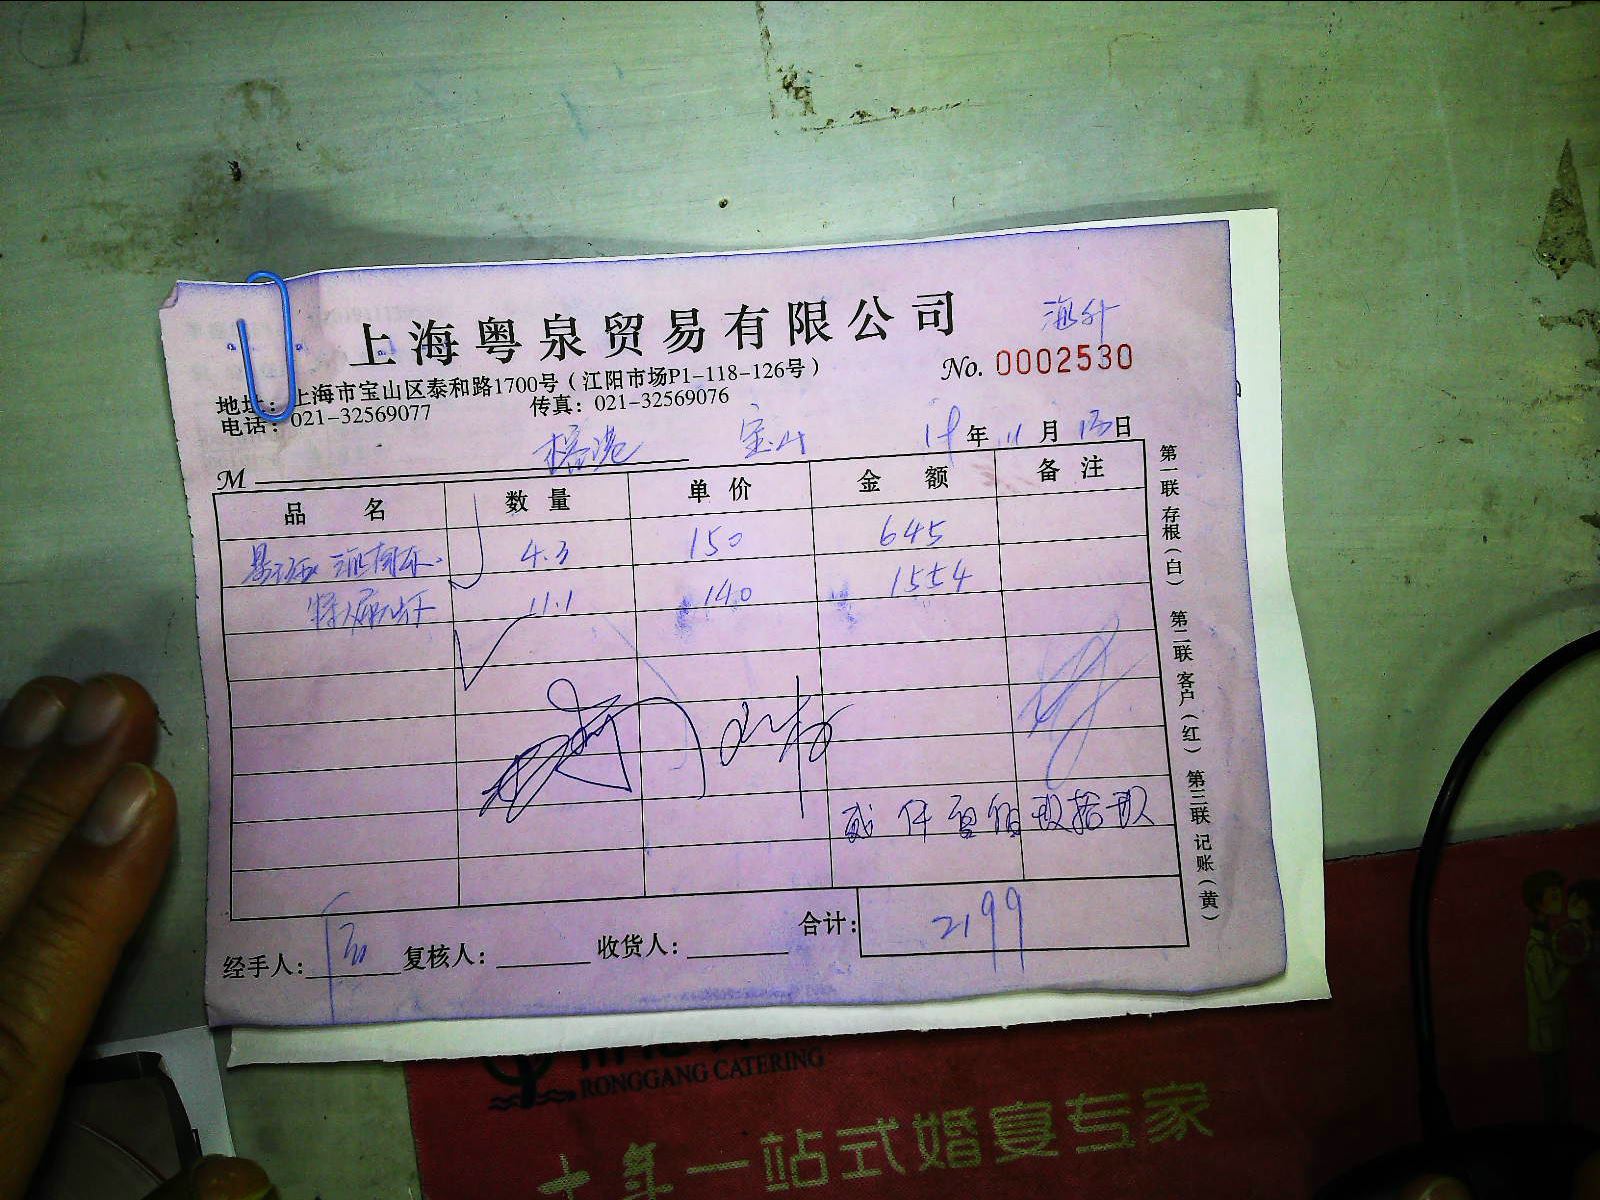 上海粤泉贸易有限公司
No. 0002530
地址：上海市宝山区泰和路1700号（江阳市场P1-118-126号）
电话：021-32569077 传真：021-32569076
M 宝山 年 11 月 日
品名 数量 单价 金额 备注
4.3 150 645
11.1 140 1554
贰仟壹佰玖拾玖
合计： 2199
经手人： 复核人： 收货人：
第一联 存根（白） 第二联 客户（红） 第三联 记账（黄）
RONGGANG CATERING
十年一站式婚宴专家